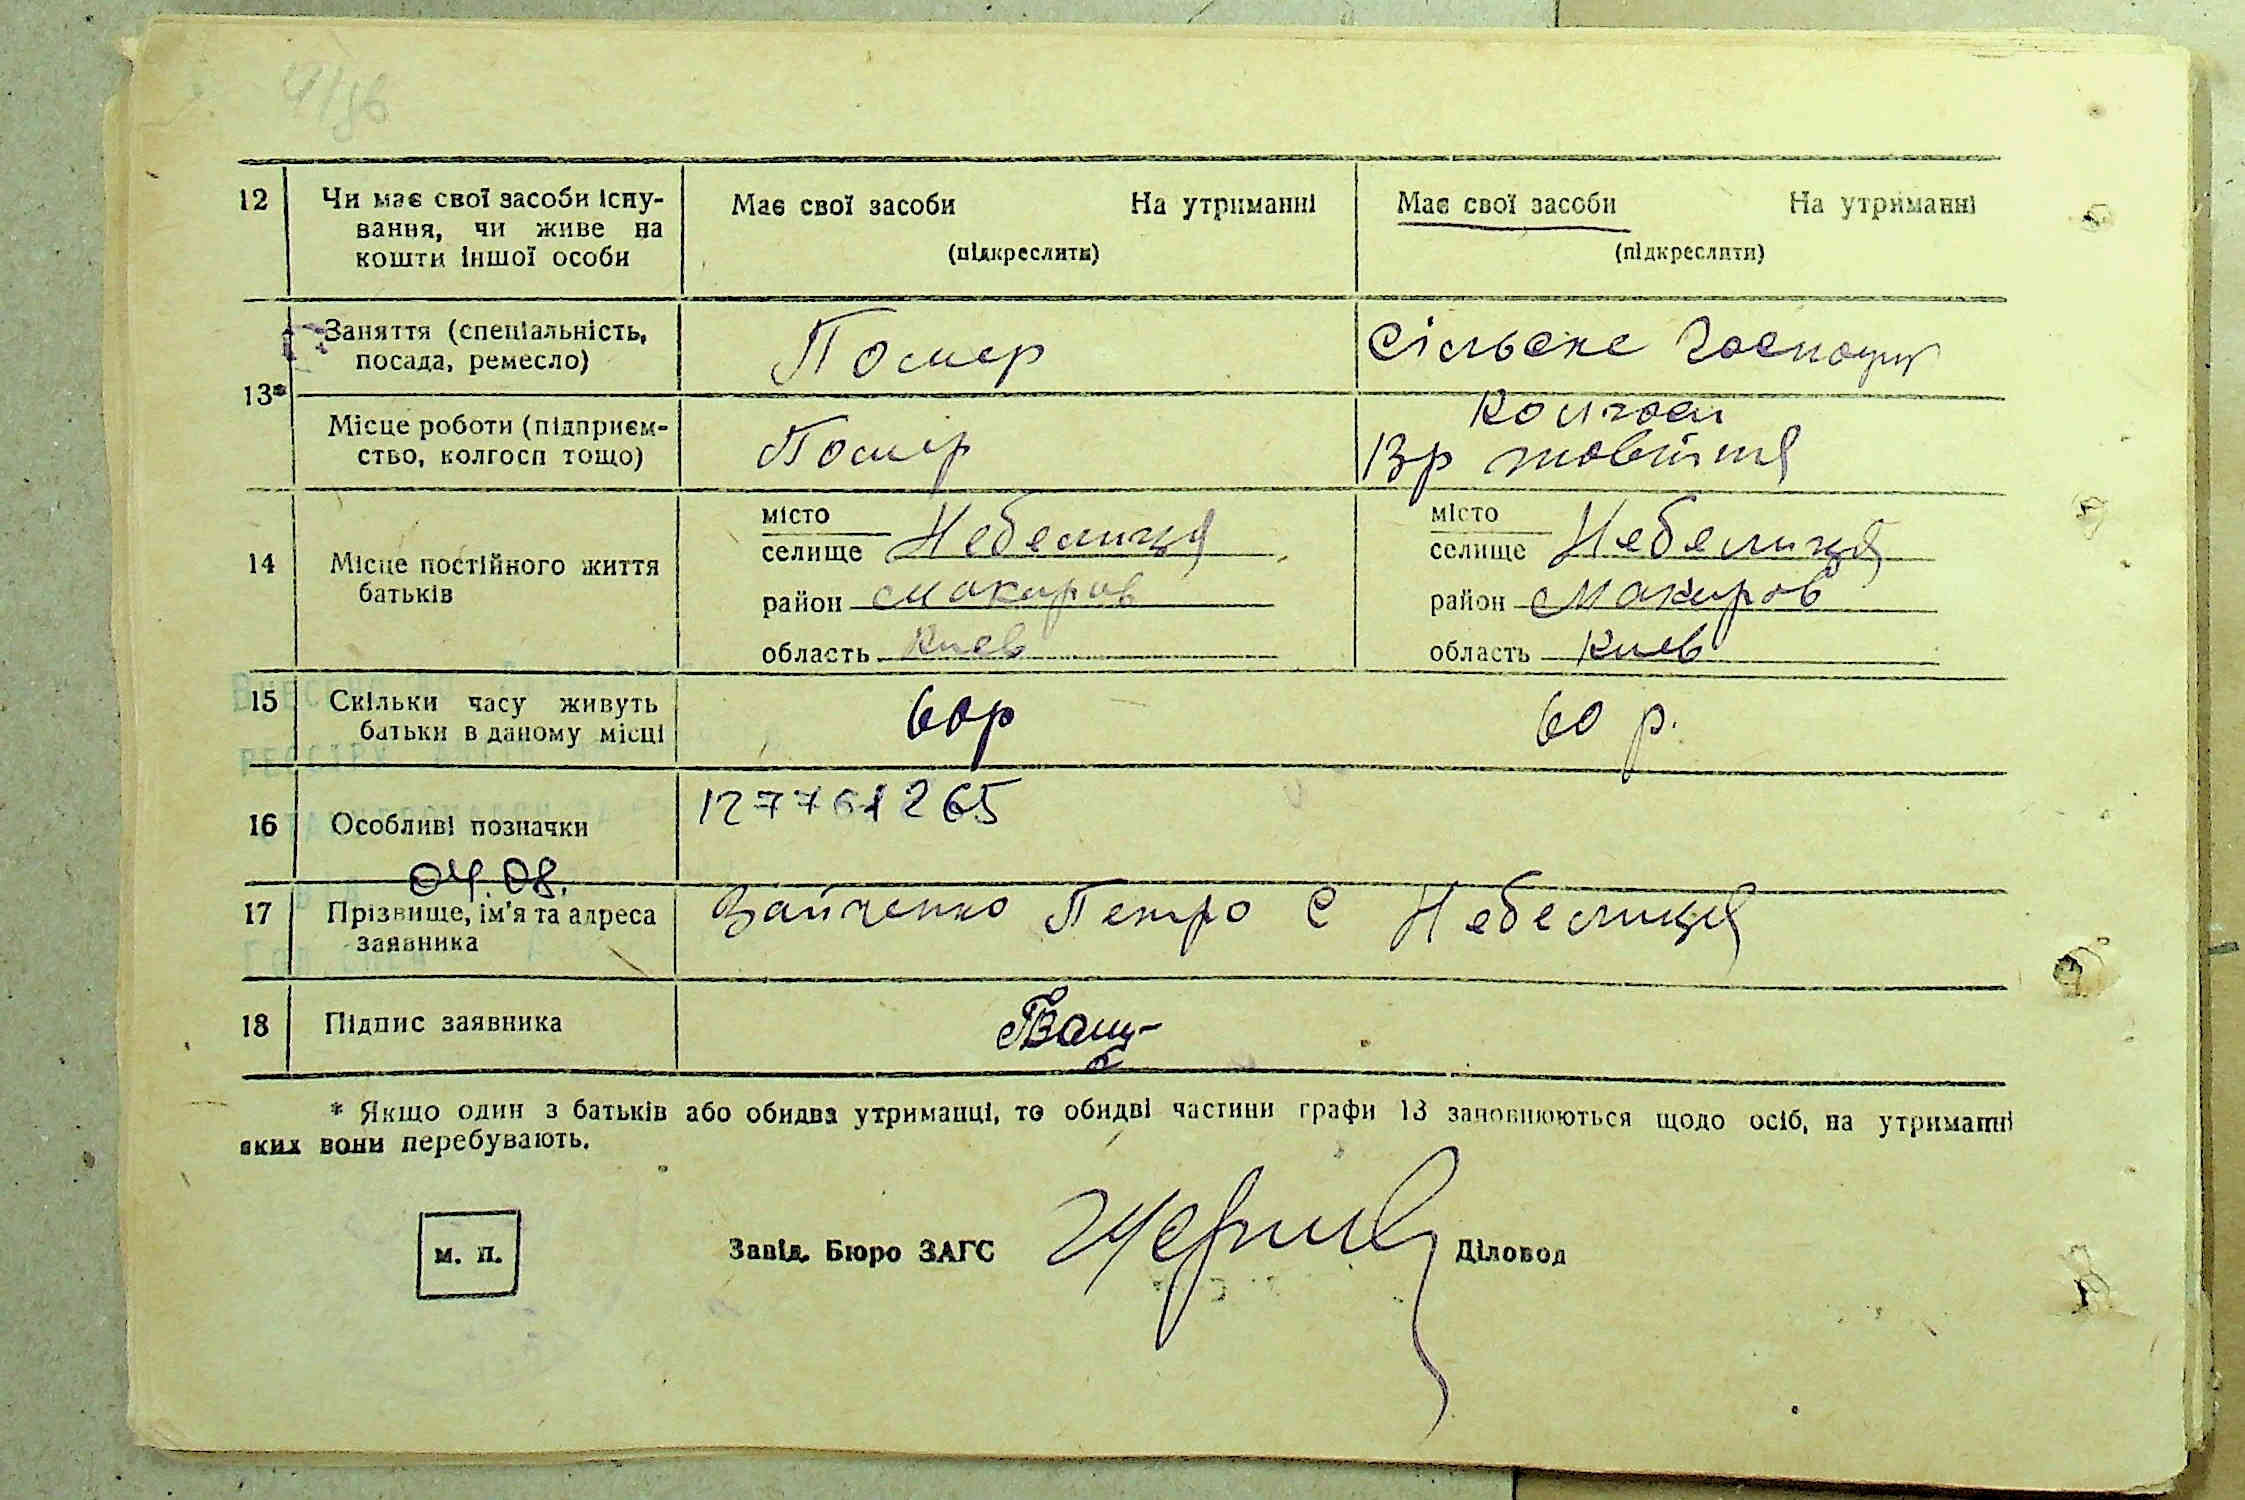 12 Чи має свої засоби існу-
вання, чи живе на
кошти іншої особи
Має свої засоби На утриманні
(підкреслити)
Має свої засоби На утриманні
(підкреслити)
13*
Заняття (спеціальність,
посада, ремесло)
Помер
Сільске
Місце роботи (підприєм-
ство, колгосп тощо)
Помер
Колгосп
Зр жовтня
14 Місце постійного життя
батьків
місто
селище Небелиця
район Макаров
область Киев
місто
селище Небелиця
район Макаров
область Киев
15 Скільки часу живуть
батьки в даному місці
60р
60 р.
16 Особливі позначки
127761265
04.08.
17 Прізвище, ім'я та адреса
заявника
Зайченко Петро С Небелиця
18 Підпис заявника
* Якщо один з батьків або обидва утриманці, то обидві частини графи 13 заповнюються щодо осіб, на утриманні
яких вони перебувають.
м. п.
Завід. Бюро ЗАГС
Діловод